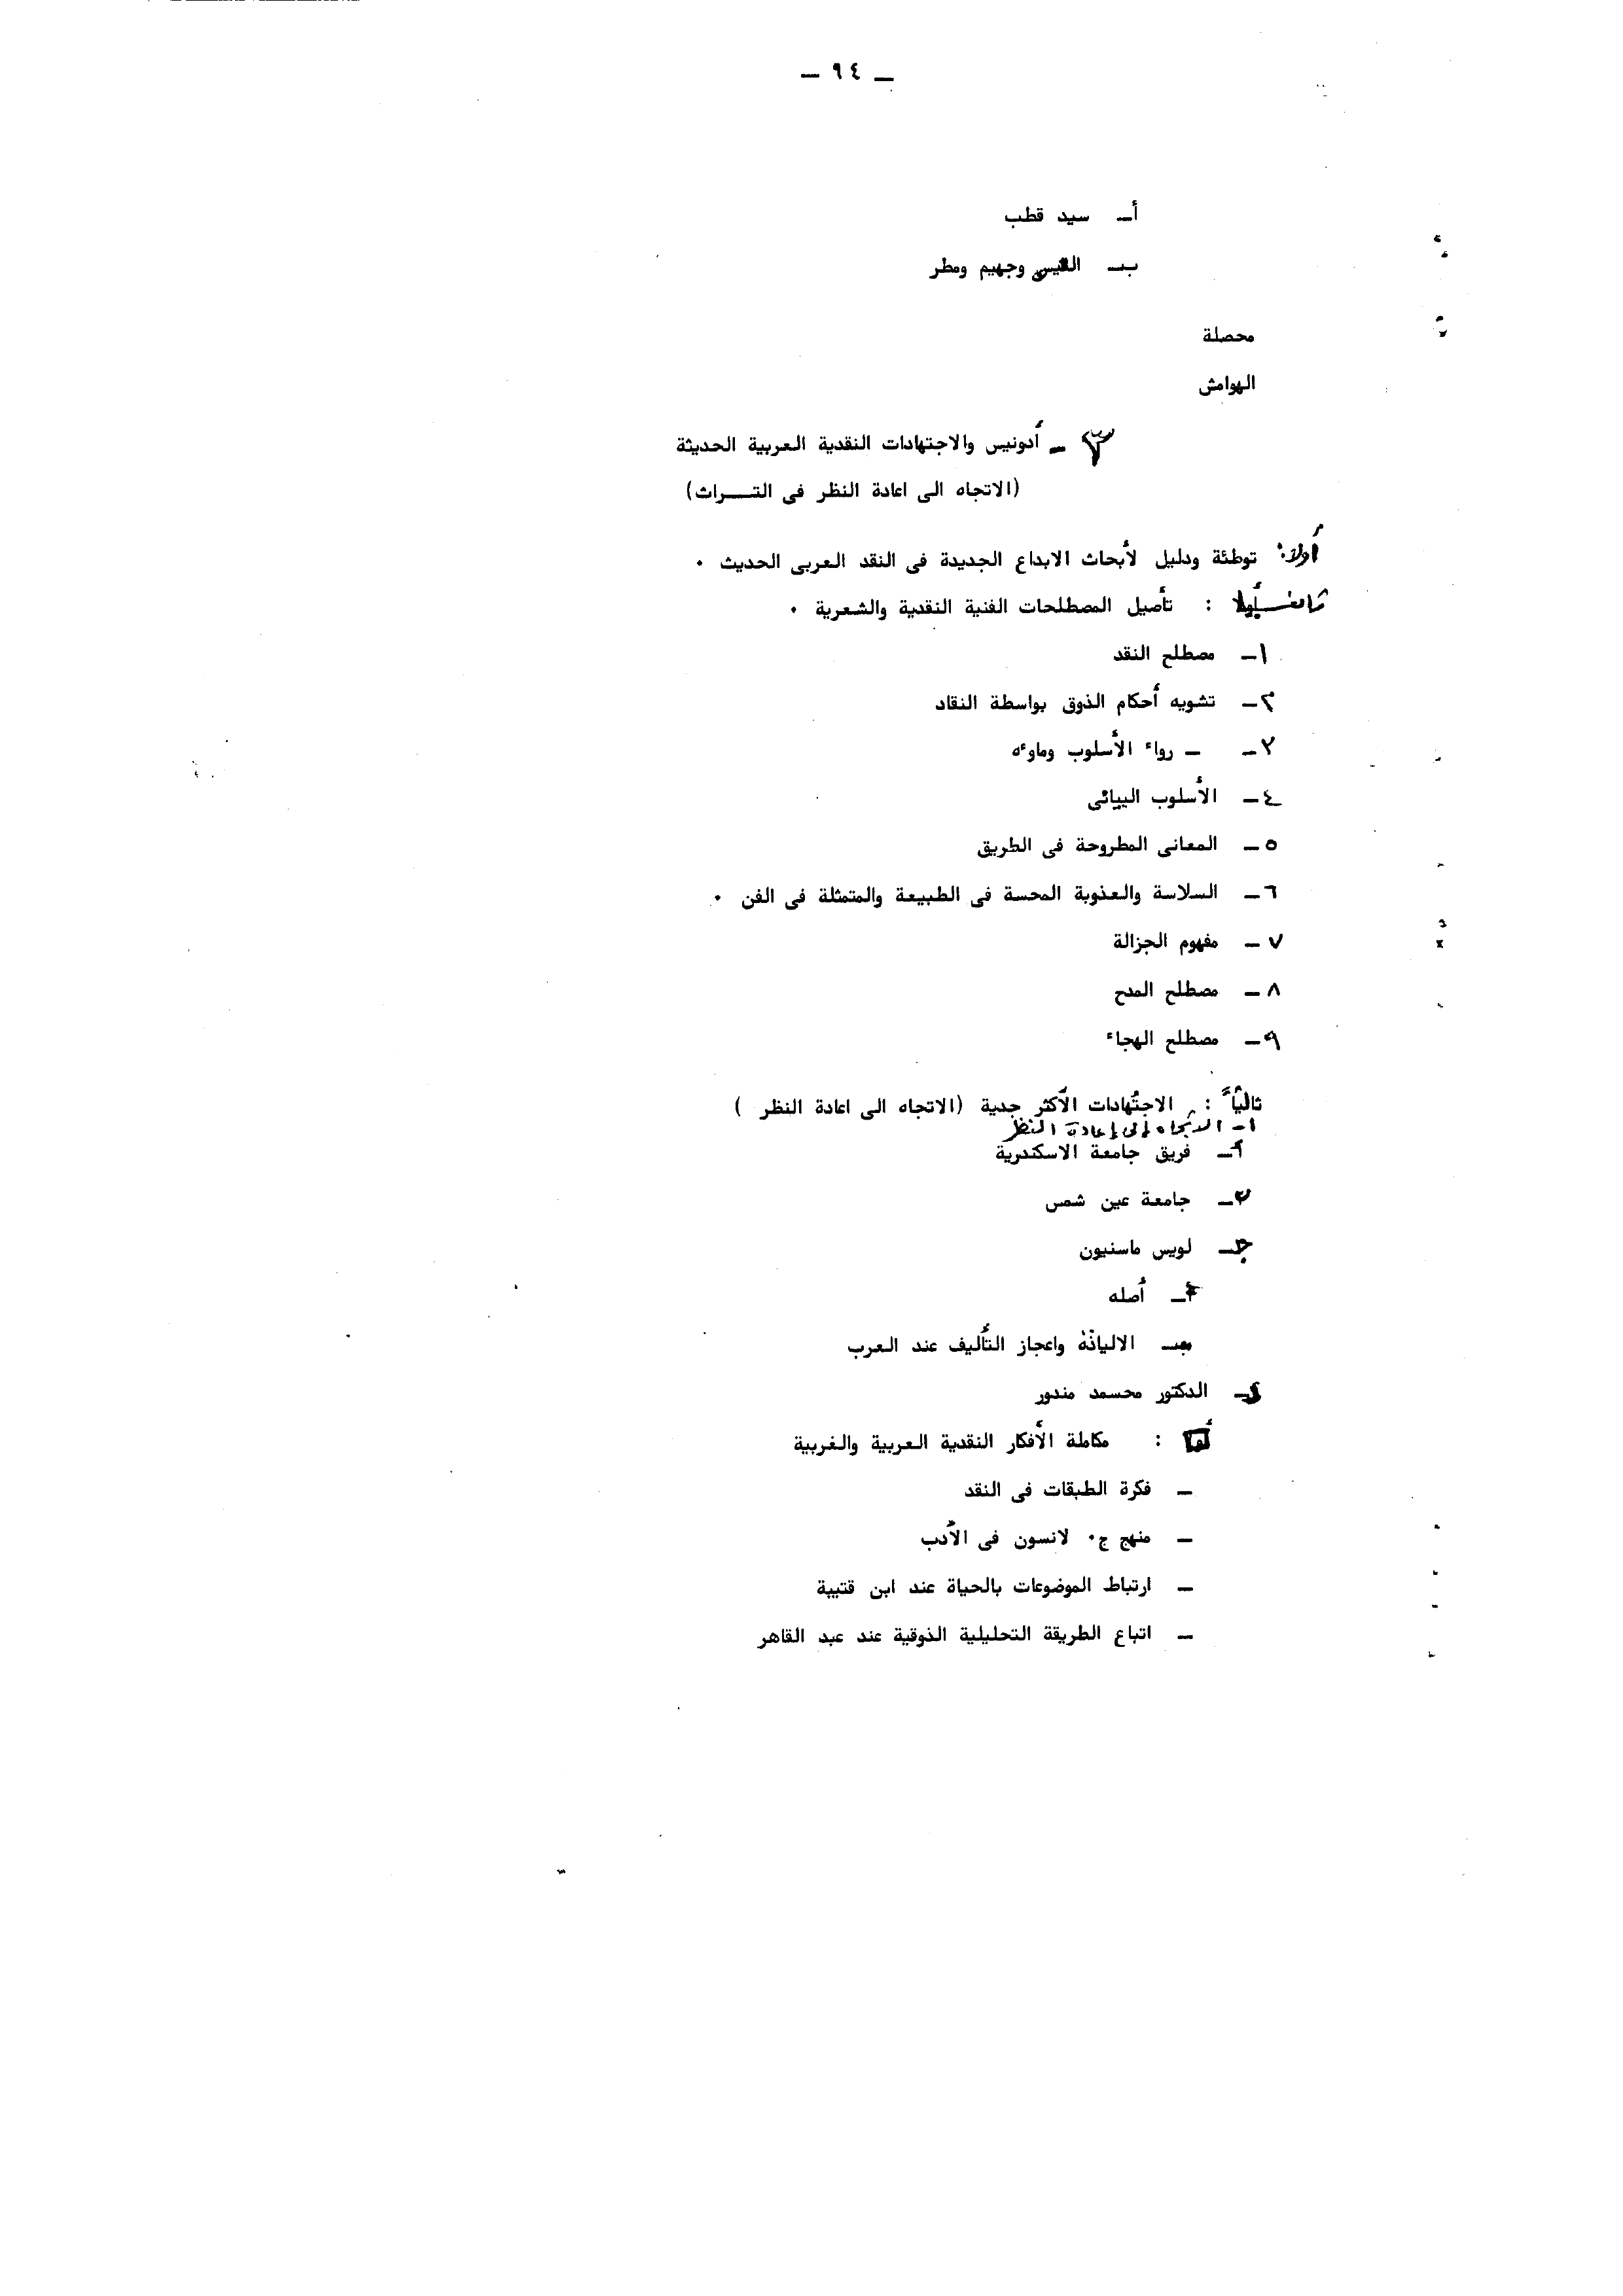 — ٩٤ —
أ — سيد قطب
ب — القيسى وجهيم ومطر
محصلة
الهوامش
٣ — أدونيس والاجتهادات النقدية العربية الحديثة
(الاتجاه الى اعادة النظر فى التـــراث)
أولا: توطئة ودليل لأبحاث الابداع الجديدة فى النقد العربى الحديث ٠
: تأصيل المصطلحات الفنية النقدية والشعرية ٠
١ — مصطلح النقد
٢ — تشويه أحكام الذوق بواسطة النقاد
٣ — — رواء الأسلوب وماوءه
٤ — الأسلوب البيانى
٥ — المعانى المطروحة فى الطريق
٦ — السلاسة والعذوبة المحسة فى الطبيعة والمتمثلة فى الفن ٠
٧ — مفهوم الجزالة
٨ — مصطلح المدح
٩ — مصطلح الهجاء
ثالثاً : الاجتهادات الأكثر جدية (الاتجاه الى اعادة النظر )
١ — الاتجاه إلى إعادة النظر
٢ — فريق جامعة الاسكندرية
— جامعة عين شمس
— لويس ماسنيون
أ — أصله
ب — الالياذة واعجاز التأليف عند العرب
— الدكتور محسمد مندور
: مكاملة الأفكار النقدية العربية والغربية
— فكرة الطبقات فى النقد
— منهج ج٠ لانسون فى الأدب
— ارتباط الموضوعات بالحياة عند ابن قتيبة
— اتباع الطريقة التحليلية الذوقية عند عبد القاهر